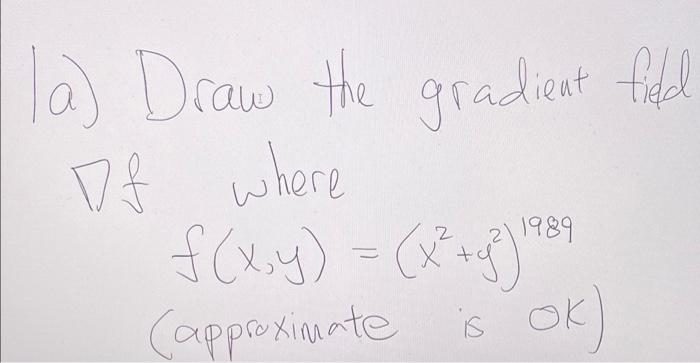 1a) Draw the gradient field
∇f where
f(x,y) = (x²+y²)¹⁹⁸⁹
(approximate is OK)